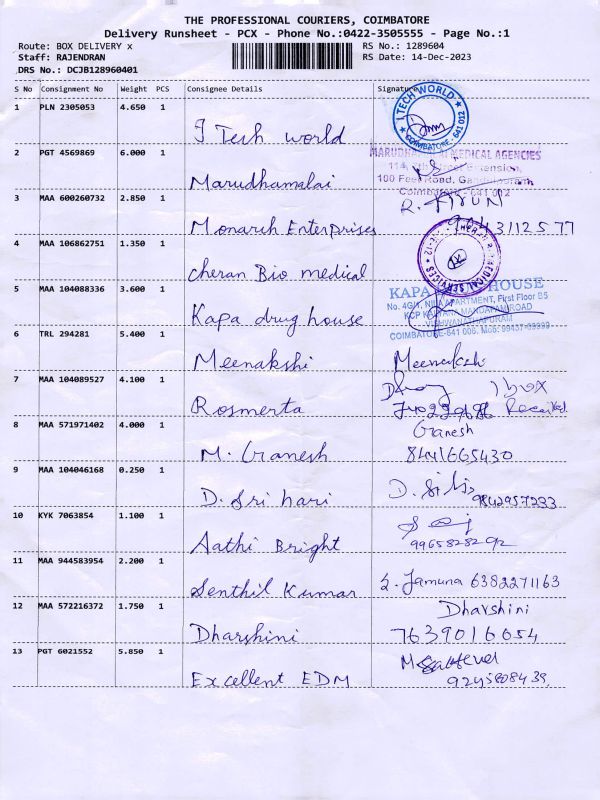 THE PROFESSIONAL COURIERS, COIMBATORE
Delivery Runsheet - PCX - Phone No.:0422-3505555 - Page No.:1
Route: BOX DELIVERY x RS No.: 1289604
Staff: RAJENDRAN RS Date: 14-Dec-2023
DRS No.: DCJB128960401
S No Consignment No Weight PCS Consignee Details Signature
1 PLN 2305053 4.650 1
I TECH WORLD
COIMBATORE - 641 012
I Tech world
2 PGT 4569869 6.000 1 MARUDHAMALAI MEDICAL AGENCIES
Extension,
100 Feet Road, Gandhipuram,
Marudhamalai Coimbatore - 641 012
3 MAA 600260732 2.850 1 R. ARUN
Monarch Enterprises
4 MAA 106862751 1.350 1
MEDICAL SERVICES
Cheran Bio medical
5 MAA 104088336 3.600 1 KAPA HOUSE
APARTMENT, First Floor B5
ROAD
Kapa drug house
COIMBATORE-641 006.
6 TRL 294281 5.400 1
Meenakshi Meenakshi
7 MAA 104089527 4.100 1 1 box
Rosmerta Received
8 MAA 571971402 4.000 1 Ganesh
M. Ganesh 8441665430
9 MAA 104046168 0.250 1
D. Sri hari 9842957233
10 KYK 7063854 1.100 1
Aathi Bright 9965828292
11 MAA 944583954 2.200 1
Senthil Kumar S. Jamuna 6382271163
12 MAA 572216372 1.750 1 Dharshini
Dharshini 7639016054
13 PGT 6021552 5.850 1
Excellent EDM 9245808439